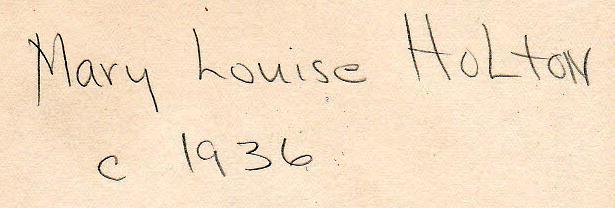 Mary Louise Holton
c 1936